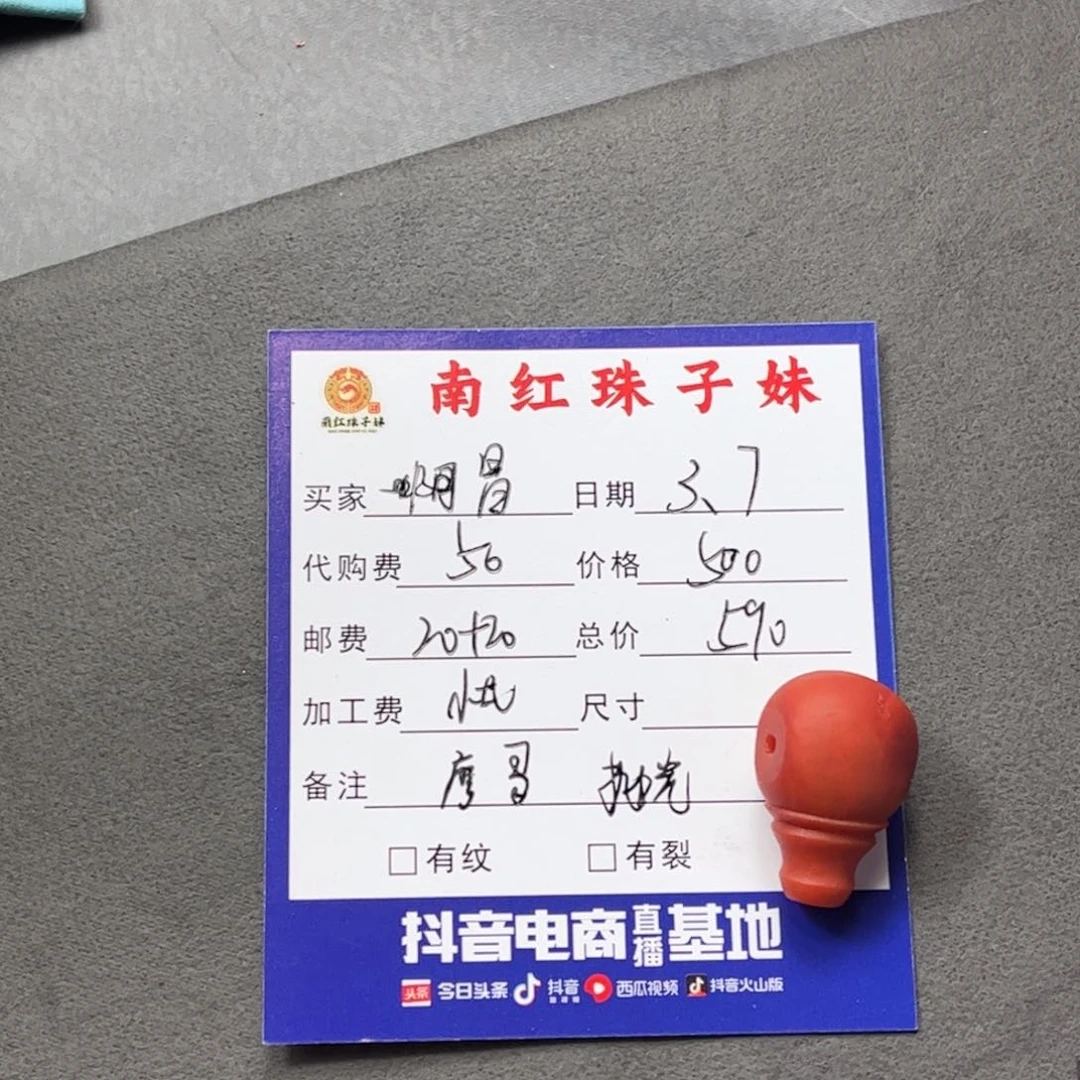 南红珠子妹
南红珠子妹
买家 明昌 日期 3.7
代购费 50 价格 500
邮费 20+20 总价 590
加工费 尺寸
备注 廖哥 抛光
□有纹 □有裂
抖音电商直播基地
头条 今日头条 抖音 西瓜视频 抖音火山版